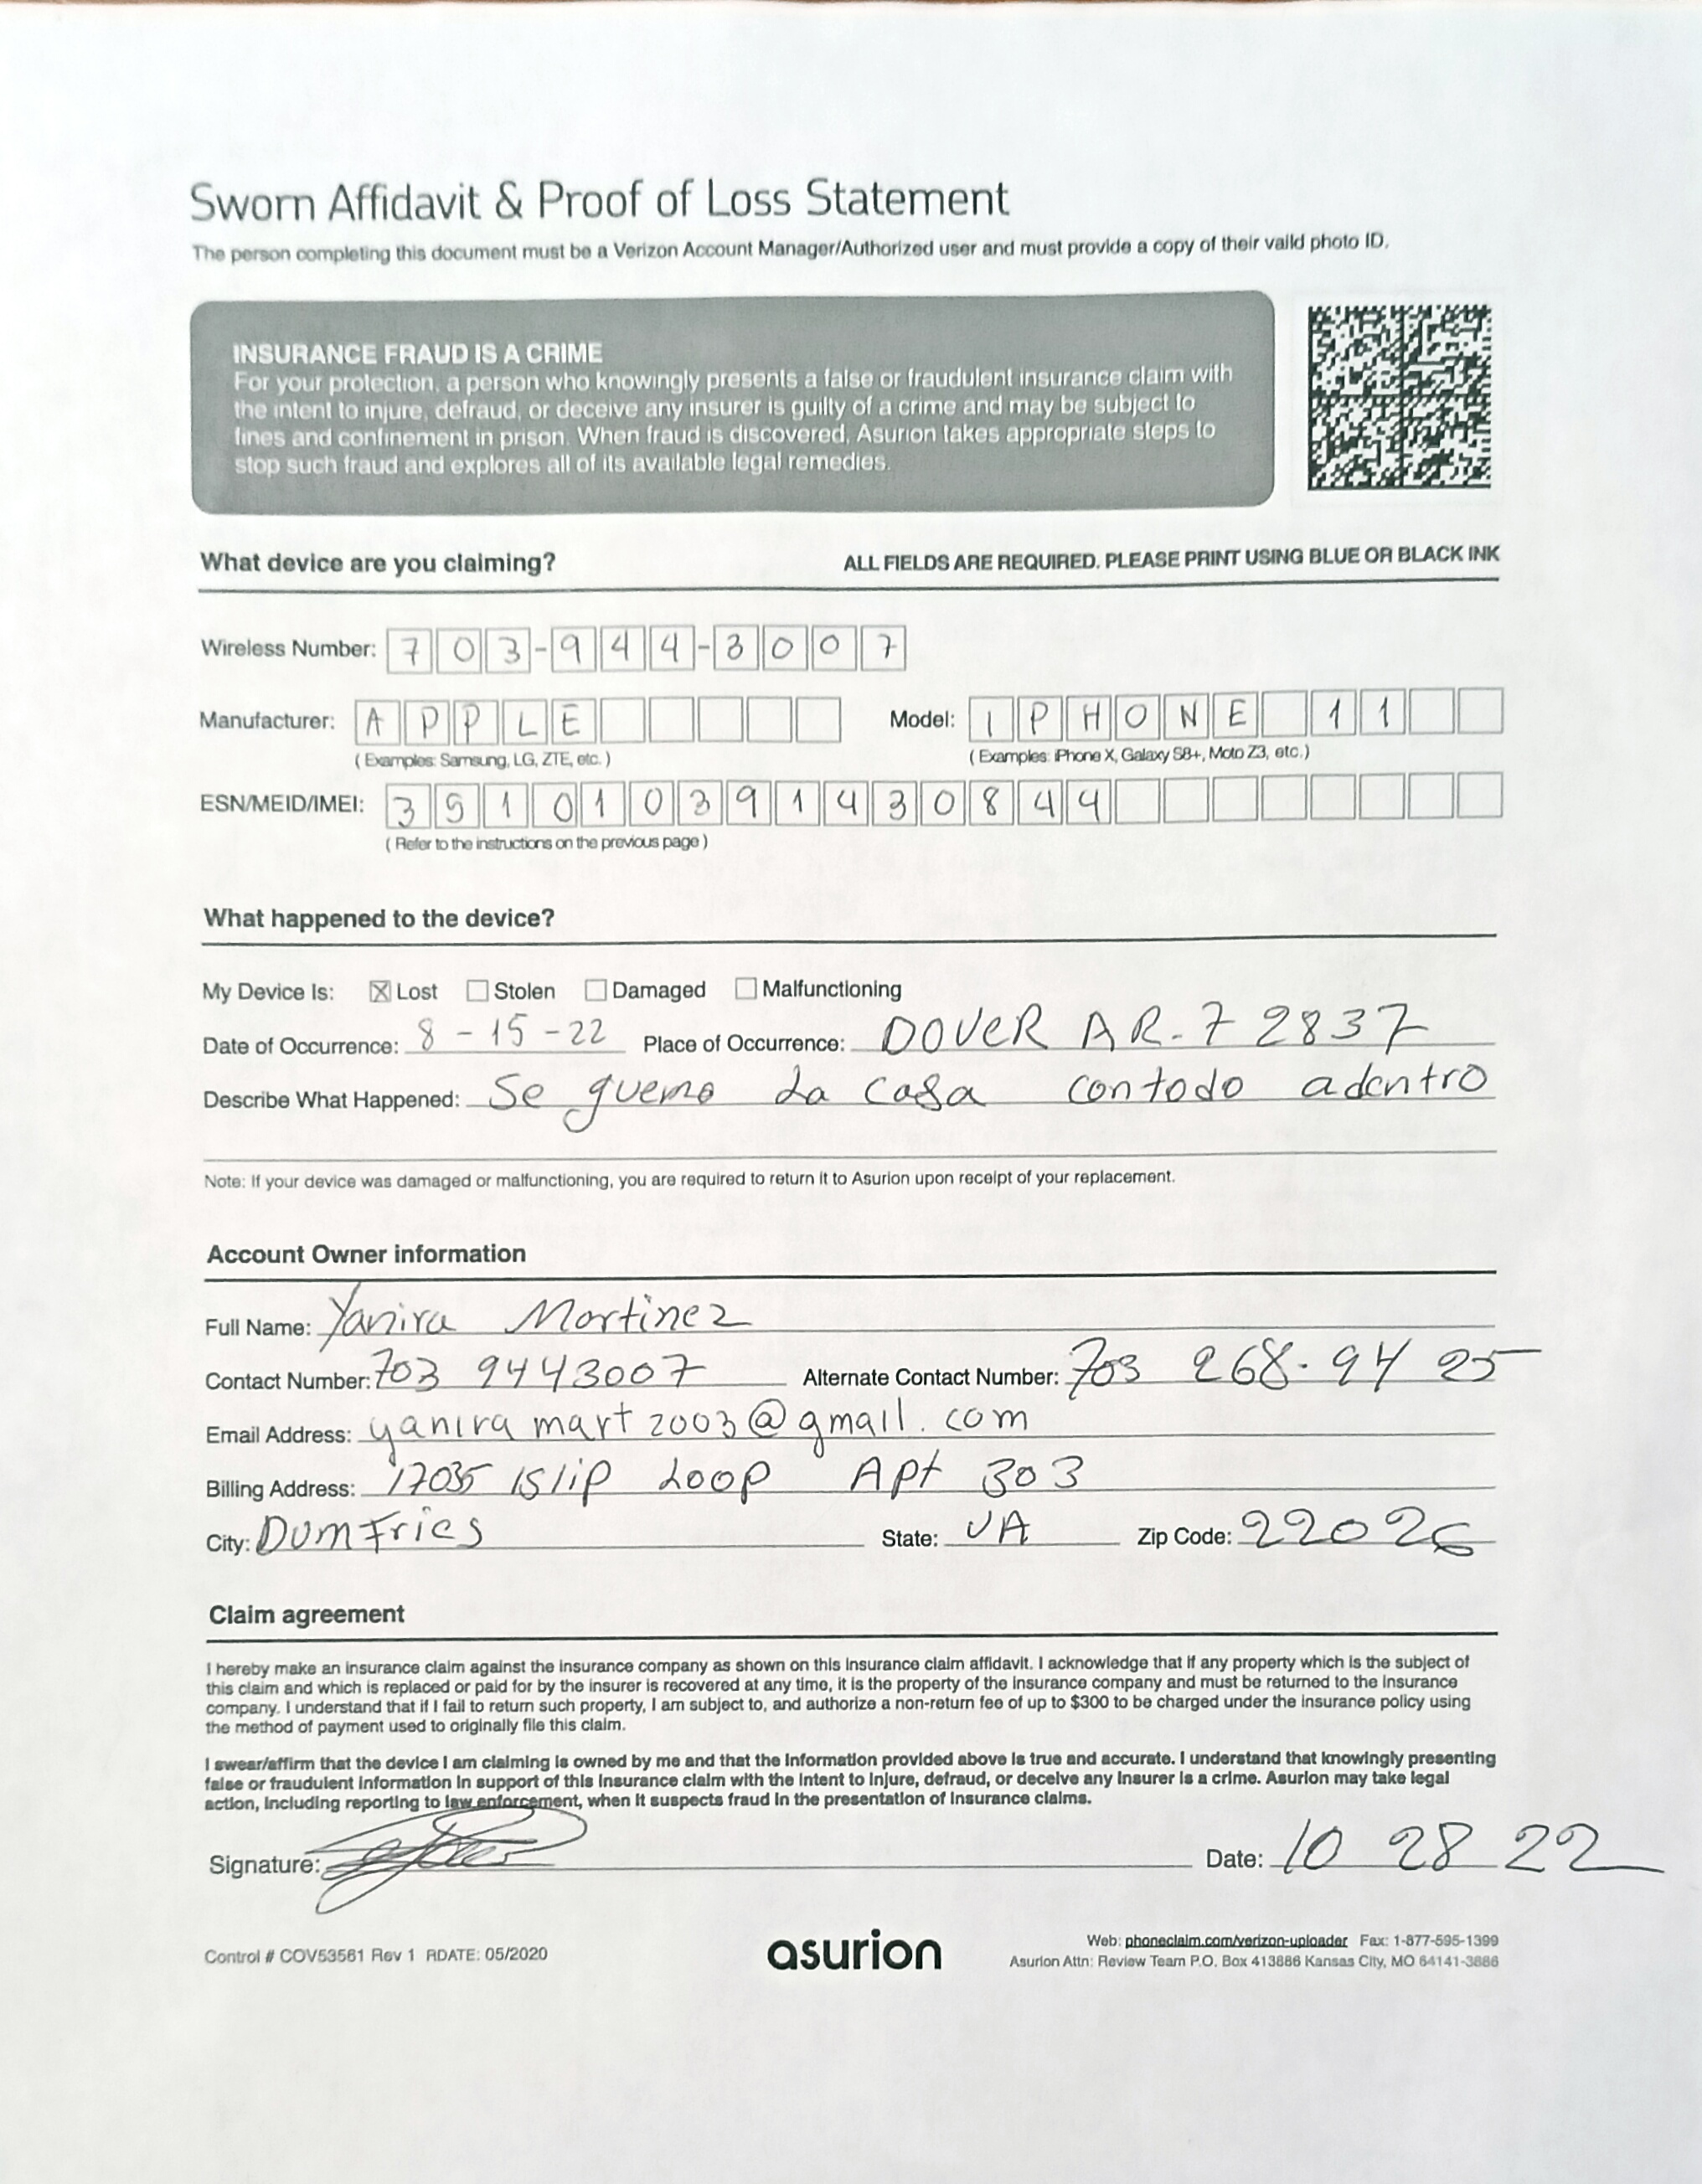 Sworn Affidavit & Proof of Loss Statement
The person completing this document must be a Verizon Account Manager/Authorized user and must provide a copy of their valid photo ID.
INSURANCE FRAUD IS A CRIME
For your protection, a person who knowingly presents a false or fraudulent insurance claim with
the intent to injure, defraud, or deceive any insurer is guilty of a crime and may be subject to
fines and confinement in prison. When fraud is discovered, Asurion takes appropriate steps to
stop such fraud and explores all of its available legal remedies.
What device are you claiming? ALL FIELDS ARE REQUIRED. PLEASE PRINT USING BLUE OR BLACK INK
Wireless Number: 703-944-3007
Manufacturer: APPLE Model: IPHONE 11
( Examples: Samsung, LG, ZTE, etc. ) ( Examples: iPhone X, Galaxy S8+, Moto Z3, etc. )
ESN/MEID/IMEI: 351010391430844
( Refer to the instructions on the previous page )
What happened to the device?
My Device Is: ☒ Lost ☐ Stolen ☐ Damaged ☐ Malfunctioning
Date of Occurrence: 8-15-22 Place of Occurrence: DOVER AR-72837
Describe What Happened: Se quemo La casa con todo adentro
Note: If your device was damaged or malfunctioning, you are required to return it to Asurion upon receipt of your replacement.
Account Owner information
Full Name: Yanira Martinez
Contact Number: 703 9443007 Alternate Contact Number: 703 268-94 25
Email Address: yanira mart2003@gmail.com
Billing Address: 17035 Islip Loop Apt 303
City: DUMFries State: VA Zip Code: 22026
Claim agreement
I hereby make an insurance claim against the insurance company as shown on this insurance claim affidavit. I acknowledge that if any property which is the subject of
this claim and which is replaced or paid for by the insurer is recovered at any time, it is the property of the insurance company and must be returned to the insurance
company. I understand that if I fail to return such property, I am subject to, and authorize a non-return fee of up to $300 to be charged under the insurance policy using
the method of payment used to originally file this claim.
I swear/affirm that the device I am claiming is owned by me and that the information provided above is true and accurate. I understand that knowingly presenting
false or fraudulent information in support of this insurance claim with the intent to injure, defraud, or deceive any insurer is a crime. Asurion may take legal
action, including reporting to law enforcement, when it suspects fraud in the presentation of insurance claims.
Signature: Date: 10 28 22
Control # COV53561 Rev 1 RDATE: 05/2020
asurion
Web: phoneclaim.com/verizon-uploader Fax: 1-877-595-1399
Asurion Attn: Review Team P.O. Box 413886 Kansas City, MO 64141-3886